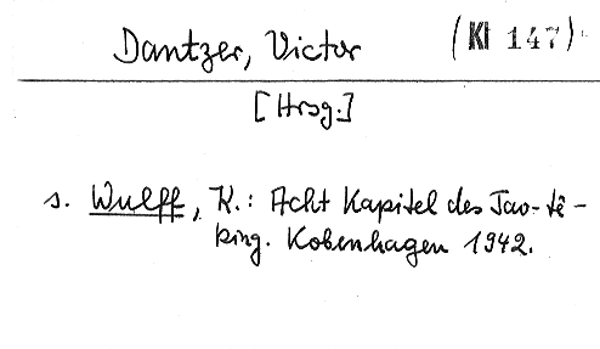 Dantzer, Victor (KI 147)
[Hrsg.]
s. Wulff, K.: Acht Kapitel des Tao-tê-
king. Kobenhagen 1942.